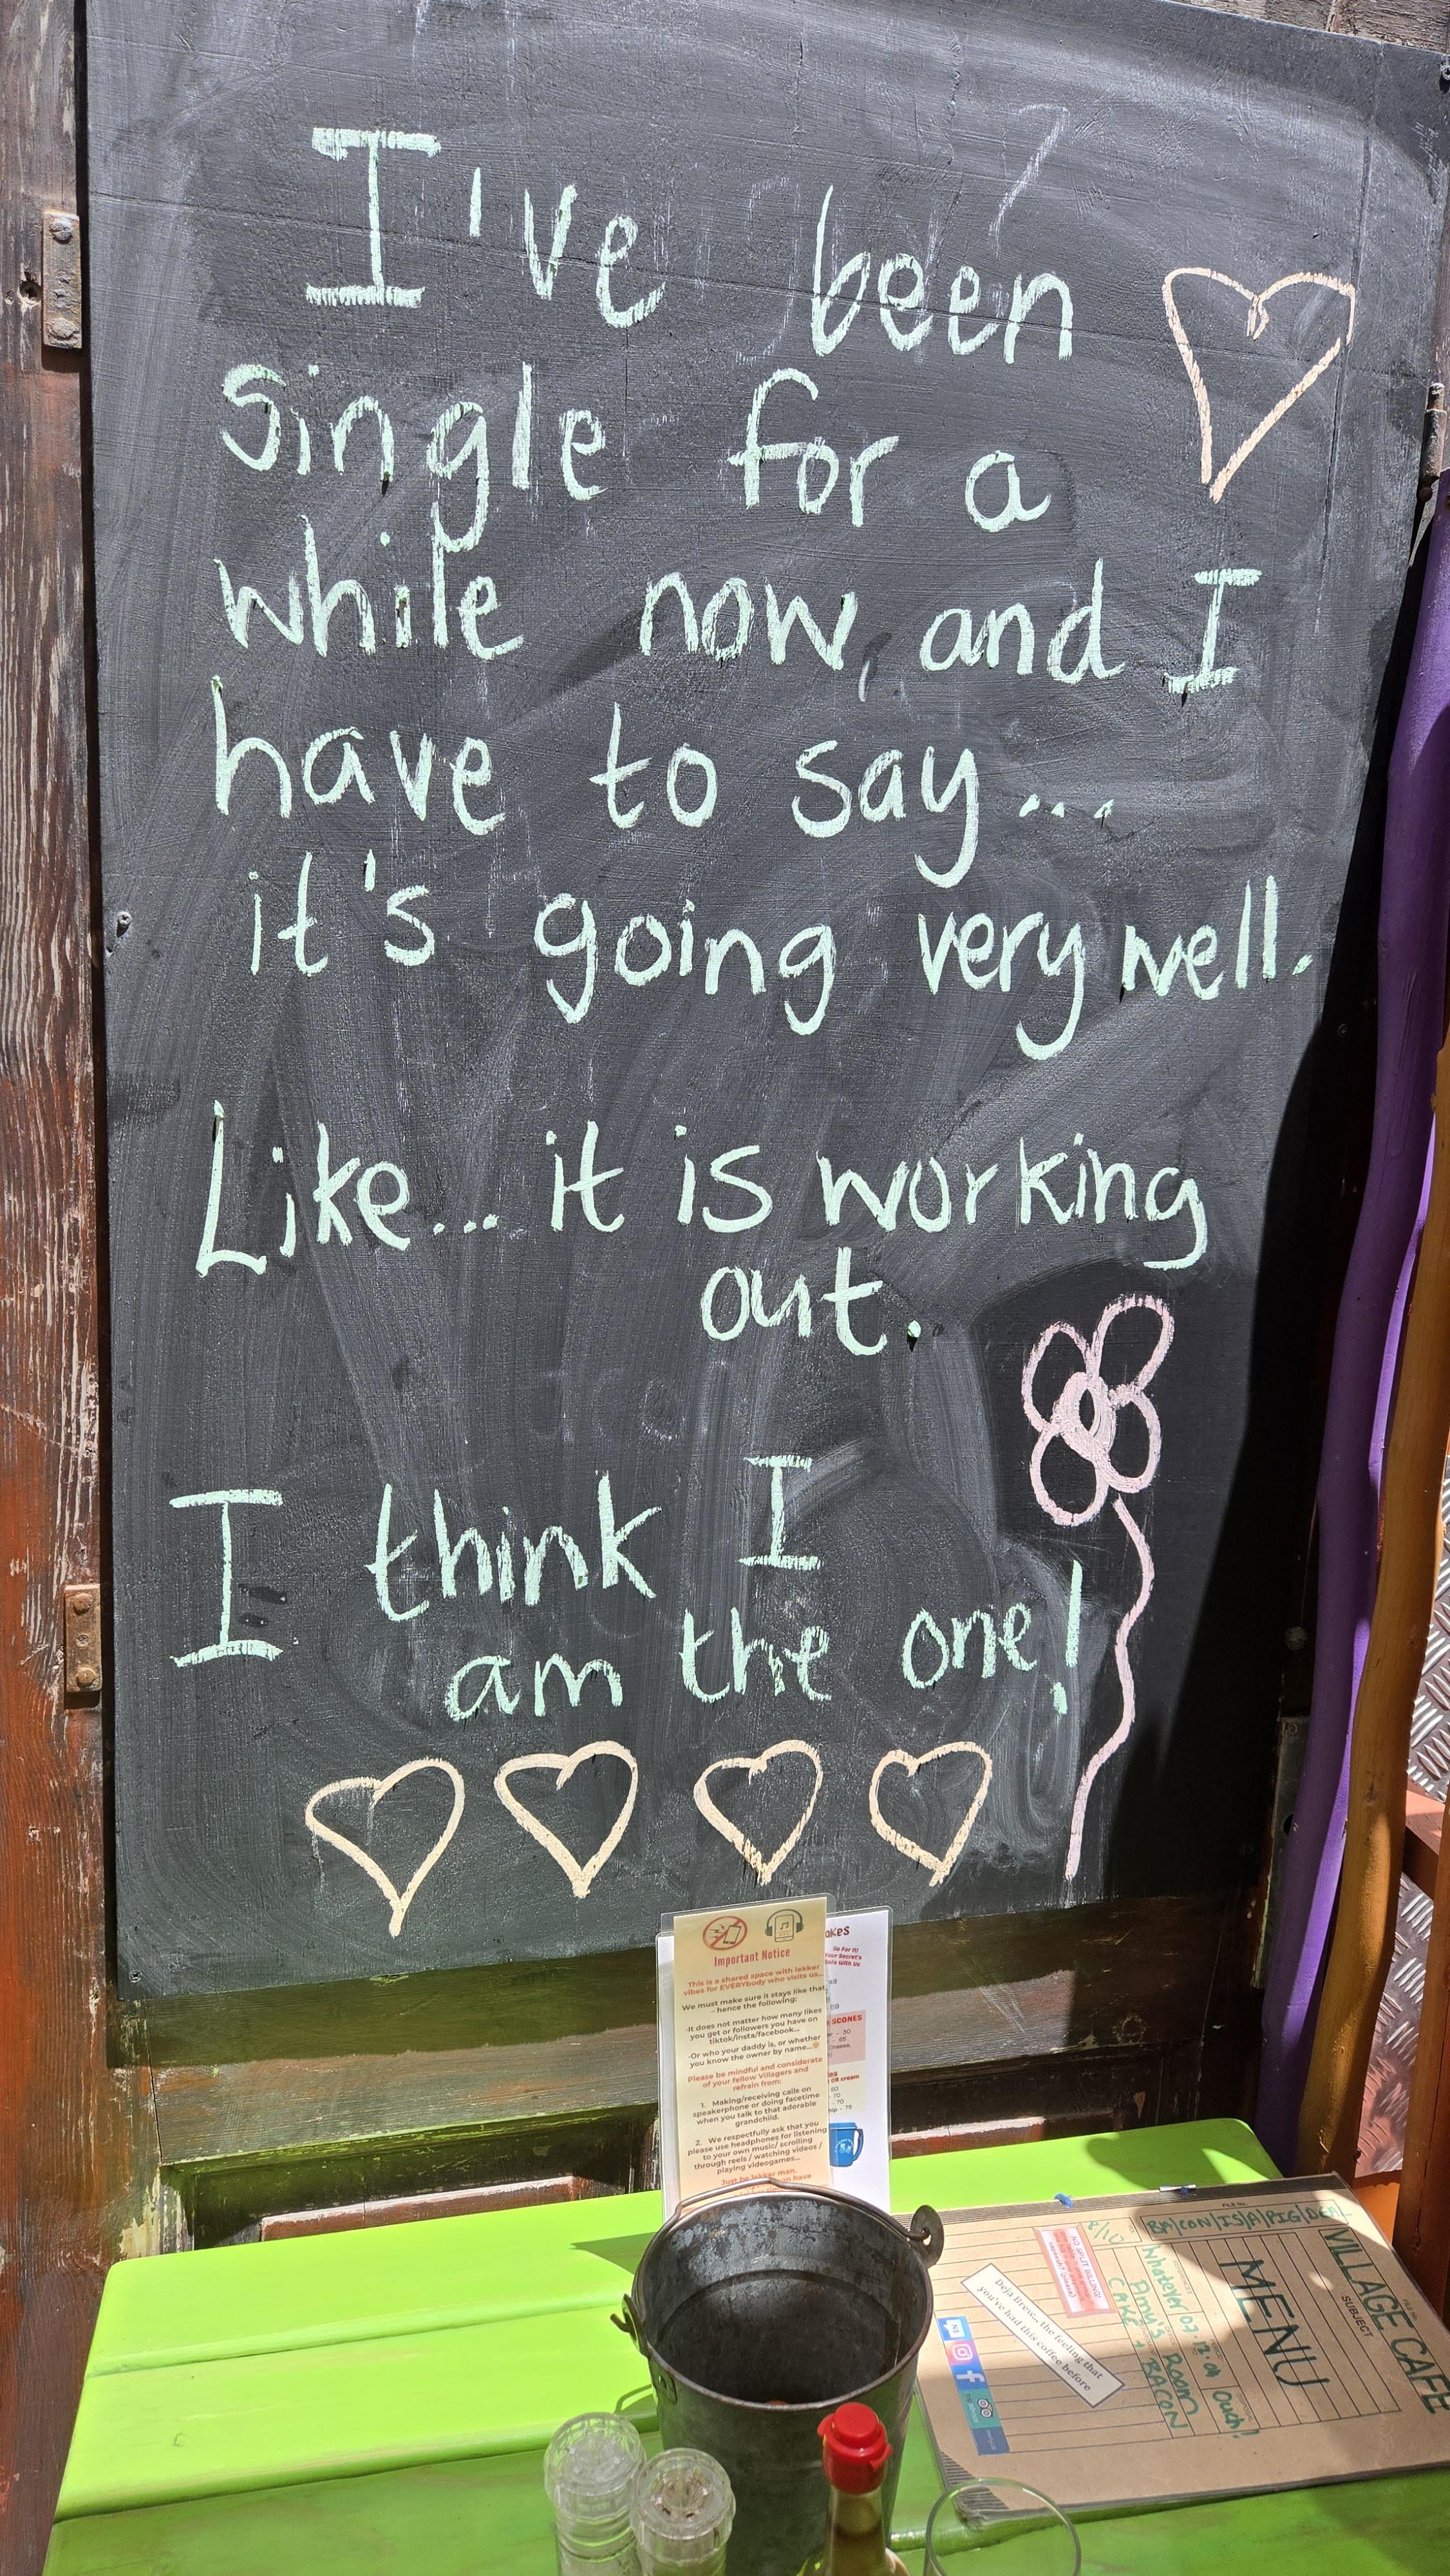 I've been
single for a
while now, and I
have to say...
it's going very well.
Like... it is working
out.
I think I
am the one!
Important Notice
This is a shared space with lekker
vibes for EVERYbody who visits us...
We must make sure it stays like that
- hence the following:
-It does not matter how many likes
you get or followers you have on
tiktok/insta/facebook...
-Or who your daddy is, or whether
you know the owner by name...
Please be mindful and considerate
of your fellow Villagers and
refrain from:
1. Making/receiving calls on
speakerphone or doing facetime
when you talk to that adorable
grandchild.
2. We respectfully ask that you
please use headphones for listening
to your own music/ scrolling
through reels / watching videos /
playing videogames...
Just be lekker man.
have
akes
Go For It!
Your Secret's
Safe With Us
SCONES
- 30
- 65
Cheese,
OR cream
- 60
- 70
- 70
- 75
VILLAGE CAFE
SUBJECT
MENU
FILE No.
BA/CON/IS/A/PIG/DEA
8/10
Whatever 07.12.04 Ouch!
Amy's Room
CAKE + BACON
NO SPLIT BILLING!
Deja Brew... the feeling that
you've had this coffee before